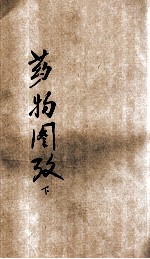 药物图考下